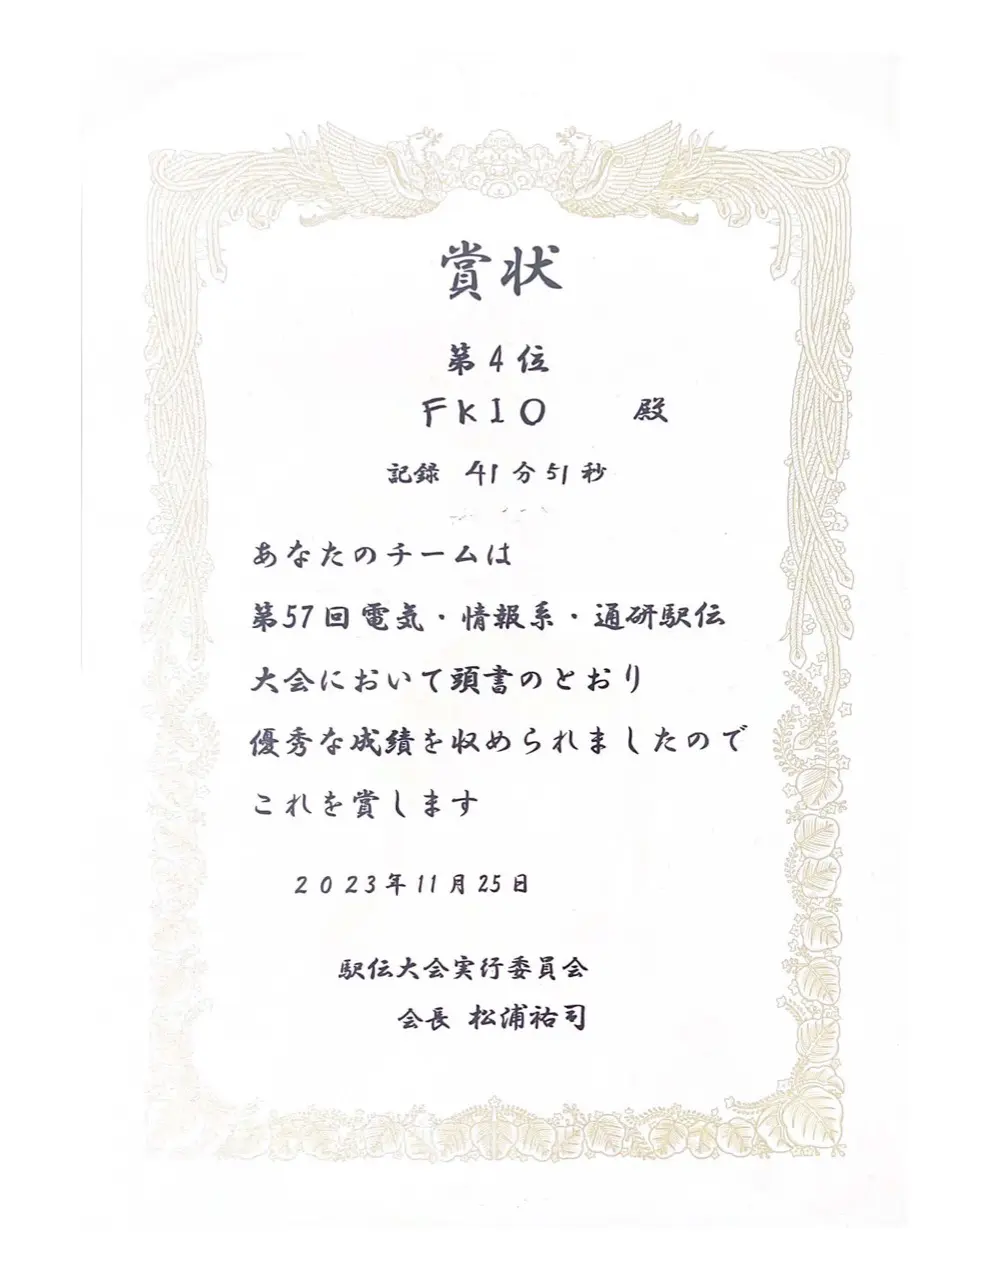 賞状
第4位
FKIO 殿
記録 41分51秒
あなたのチームは
第57回電気・情報系・通研駅伝
大会において頭書のとおり
優秀な成績を収められましたので
これを賞します
2023年11月25日
駅伝大会実行委員会
会長 松浦祐司